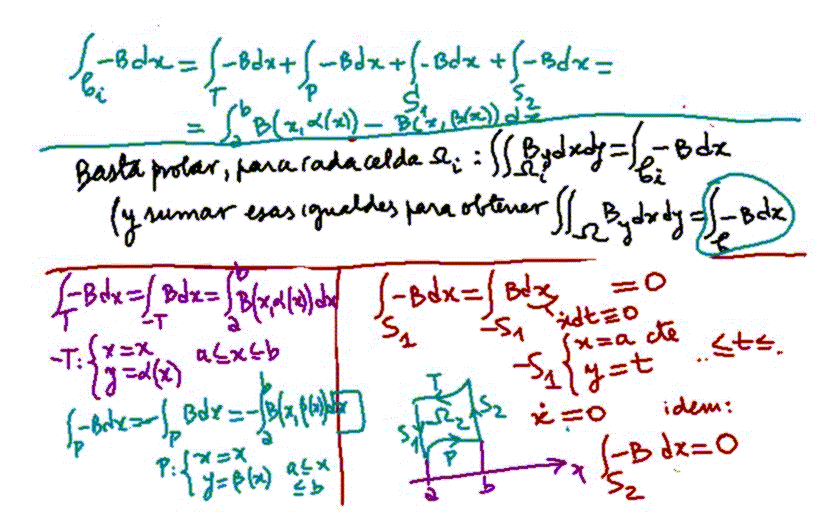 ∫_{C_i} -Bdx = ∫_T -Bdx + ∫_P -Bdx + ∫_{S_1} -Bdx + ∫_{S_2} -Bdx =
= ∫_a^b B(x, α(x)) - B(x, β(x)) dx
Basta probar, para cada celda Ω_i : ∬_{Ω_i} B_y dxdy = ∫_{C_i} -Bdx
(y sumar esas igualdes para obtener ∬_Ω B_y dxdy = ∫_C -Bdx
∫_T -Bdx = ∫_{-T} Bdx = ∫_a^b B(x, α(x)) dx
-T: { x = x
y = α(x)
a ≤ x ≤ b
∫_P -Bdx = -∫_P Bdx = -∫_a^b B(x, β(x)) dx
P: { x = x
y = β(x)
a ≤ x
≤ b
∫_{S_1} -Bdx = ∫_{-S_1} Bdx = 0
ẋdt = 0
-S_1 { x = a cte
y = t
.. ≤ t ≤ ..
ẋ = 0
idem:
∫_{S_2} -B dx = 0
T
S_1 Ω_2 S_2
P
a b x